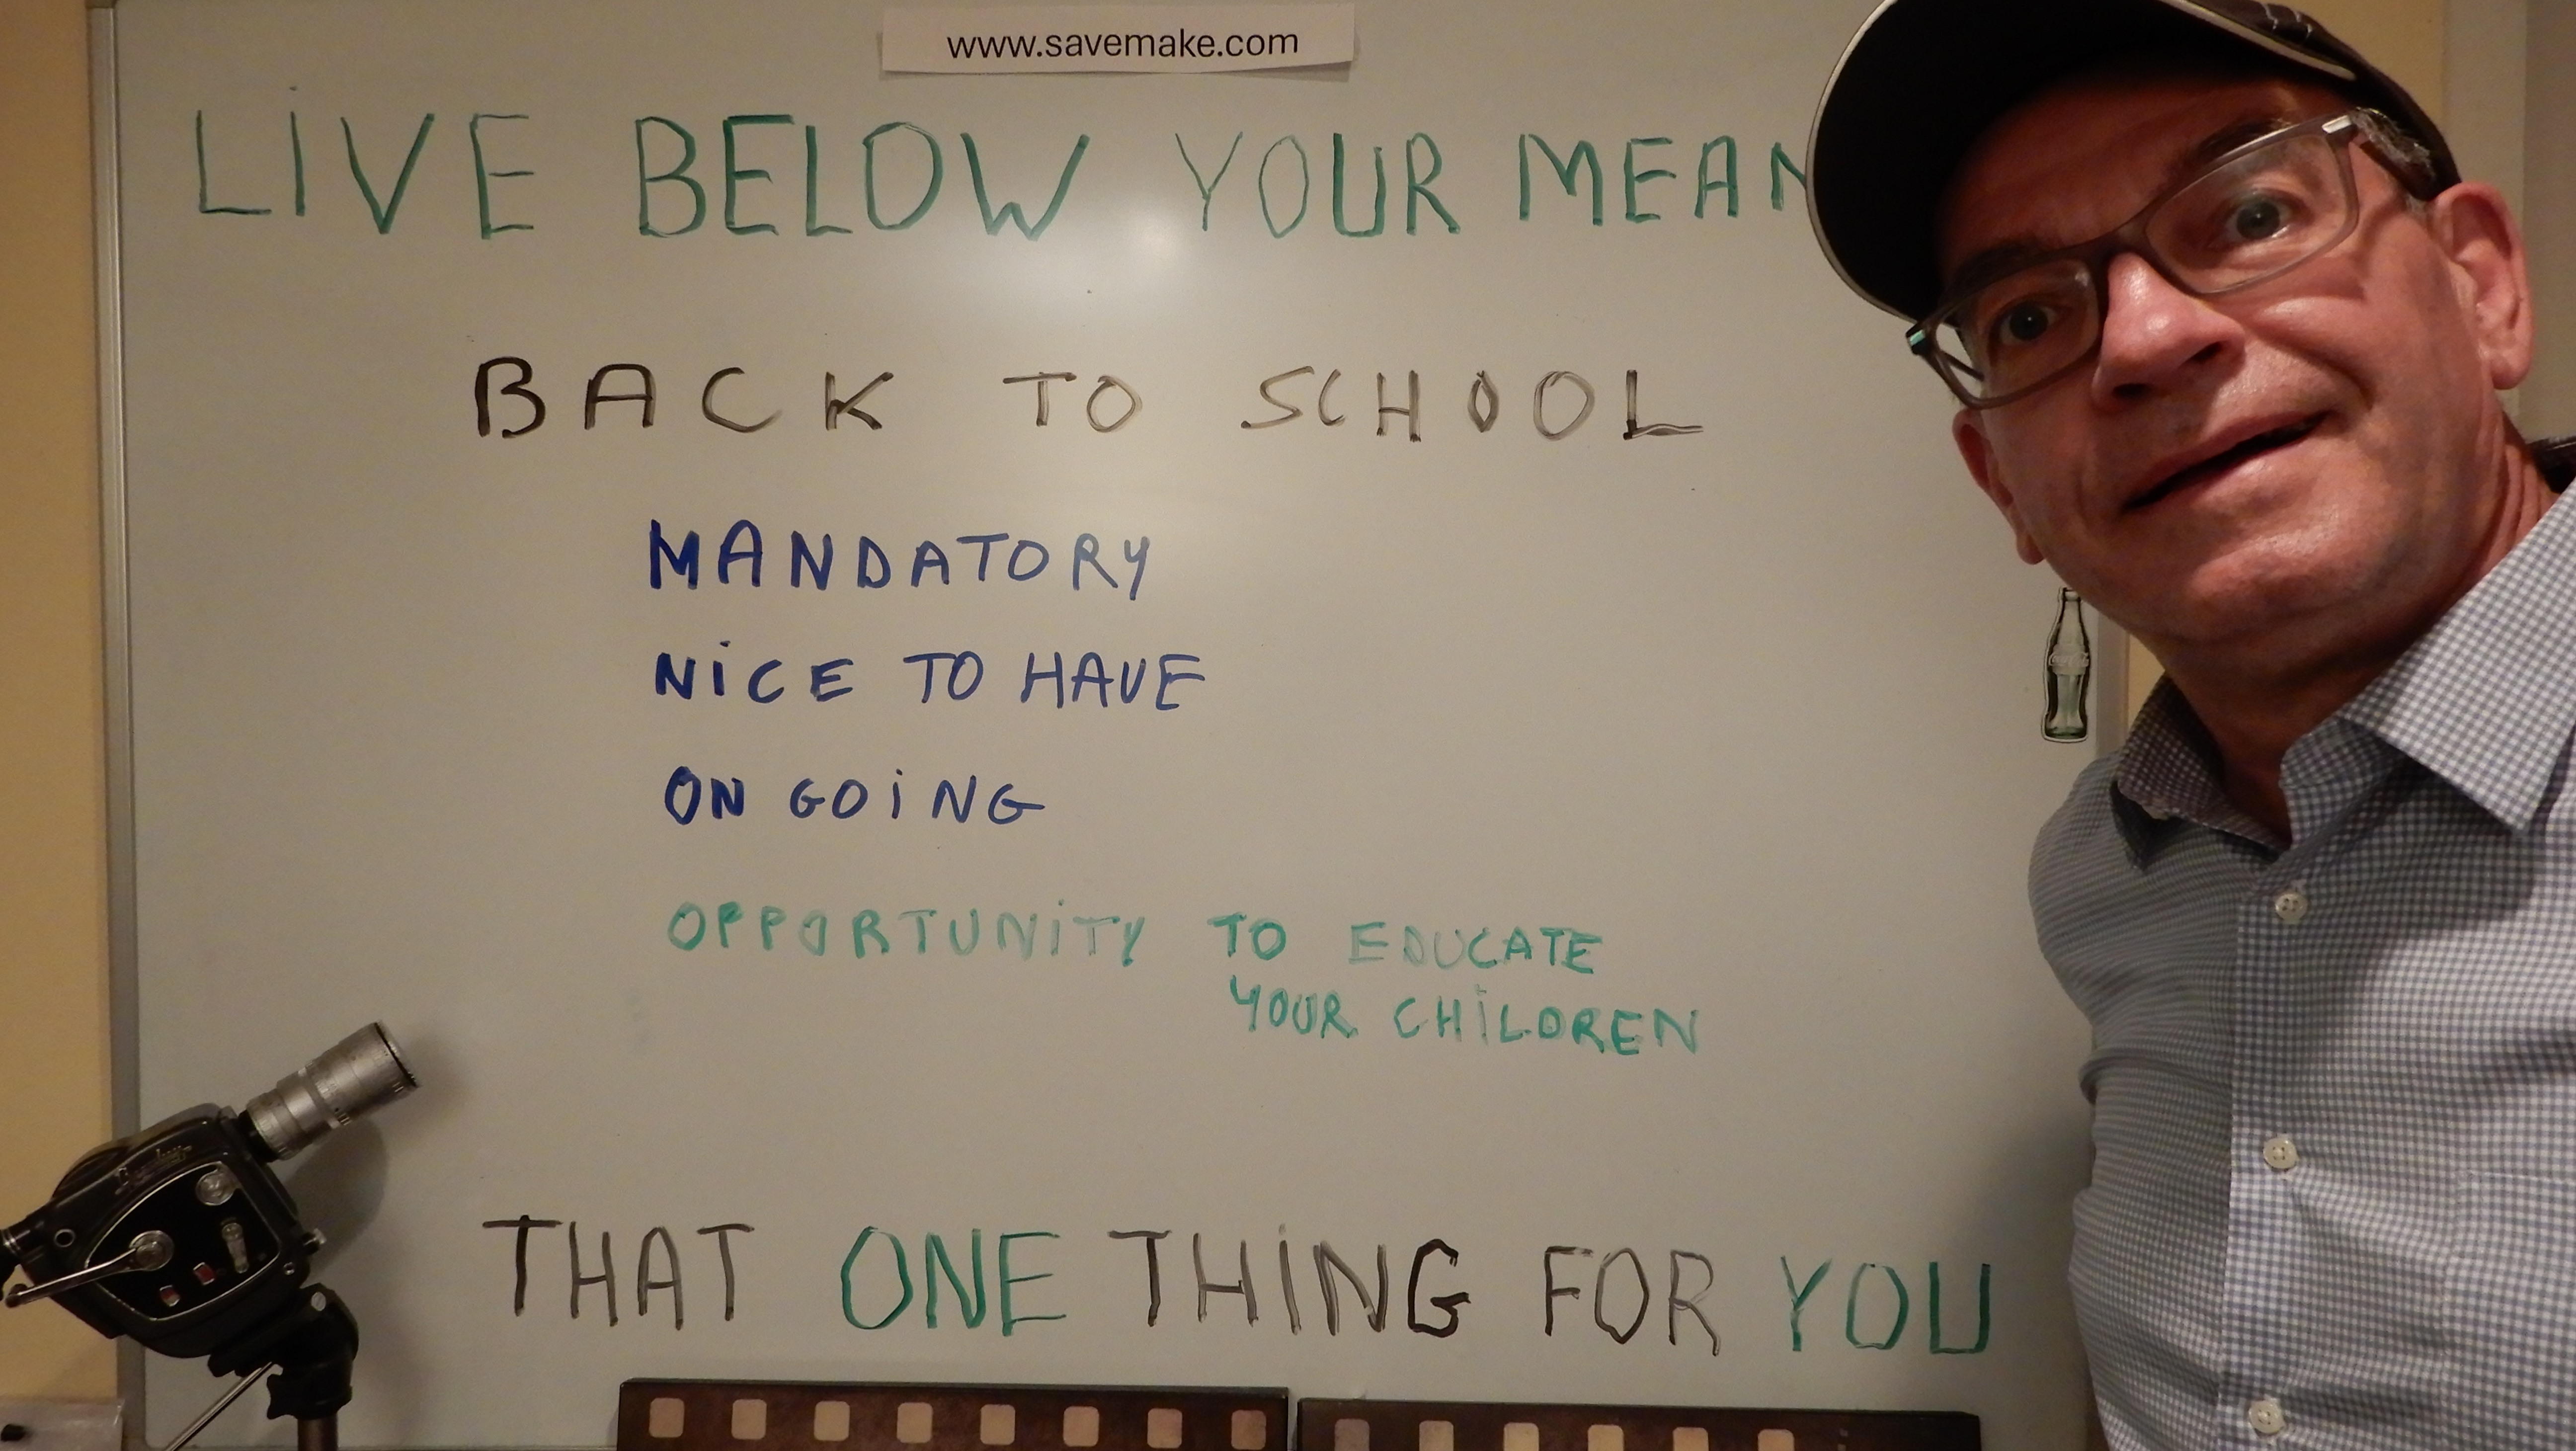 www.savemake.com
LiVE BELOW YOUR MEAN
BACK TO SCHOOL
MANDATORY
NiCE TO HAVE
ON GOiNG
OPPORTUNiTY TO EDUCATE
YOUR CHiLDREN
THAT ONE THiNG FOR YOU